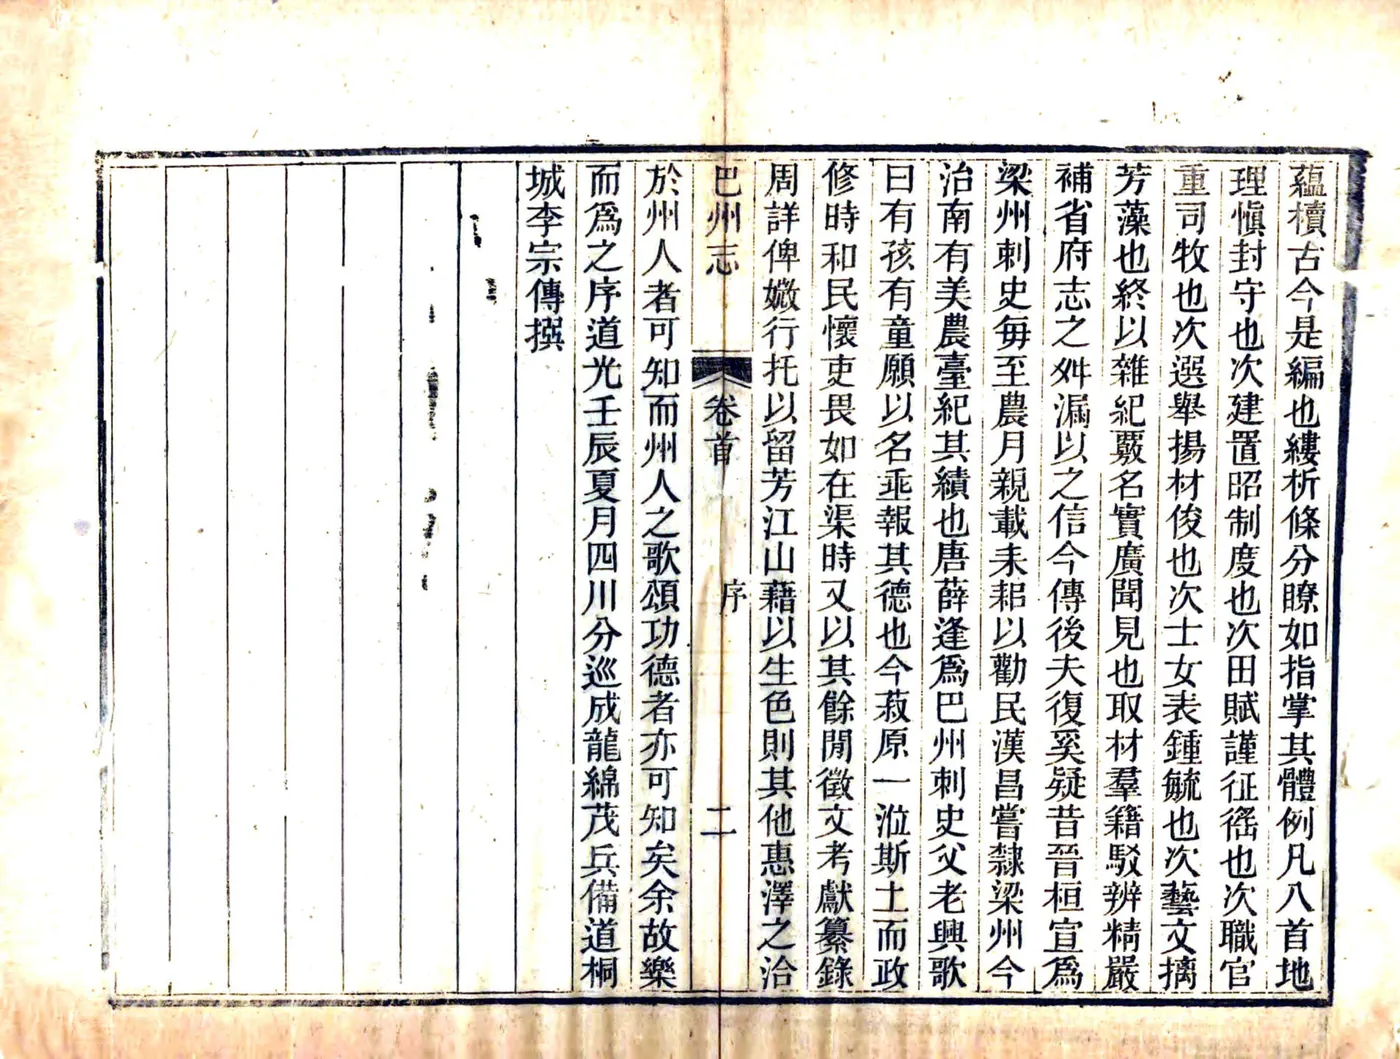 蘊櫝古今是編也縷析條分瞭如指掌其體例凡八首地
理愼封守也次建置昭制度也次田賦謹征徭也次職官
重司牧也次選舉揚材俊也次士女表鍾毓也次藝文摛
芳藻也終以雜紀覈名實廣聞見也取材羣籍駁辨精嚴
補省府志之舛漏以之信今傳後夫復奚疑昔晉桓宣爲
梁州刺史每至農月親載耒耜以勸民漢昌嘗隸梁州今
治南有美農臺紀其績也唐薛逢爲巴州刺史父老興歌
曰有孩有童願以名垂報其德也今菽原一涖斯土而政
修時和民懷吏畏如在渠時又以其餘閒徵文考獻纂錄
周詳俾媺行托以留芳江山藉以生色則其他惠澤之洽
巴州志 卷首 序 二
於州人者可知而州人之歌頌功德者亦可知矣余故樂
而爲之序道光壬辰夏月四川分巡成龍綿茂兵備道桐
城李宗傳撰